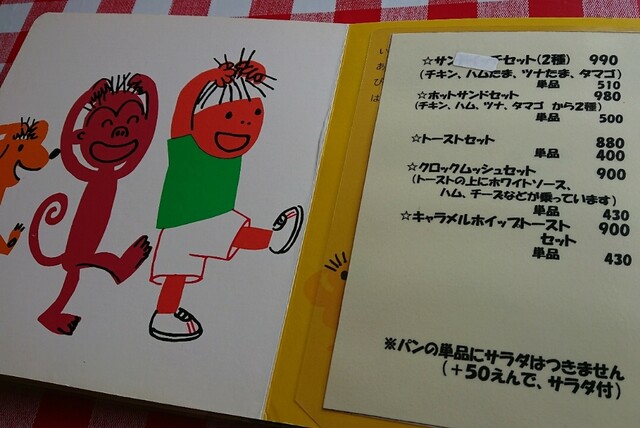 い
あ
び
は
☆サン チセット(2種) 990
(チキン、ハムたま、ツナたま、タマゴ)
単品 510
☆ホットサンドセット 980
(チキン、ハム、ツナ、タマゴ から2種)
単品 500
☆トーストセット 880
単品 400
☆クロックムッシュセット 900
(トーストの上にホワイトソース、
ハム、チーズなどが乗っています)
単品 430
☆キャラメルホイップトースト
セット 900
単品 430
※パンの単品にサラダはつきません
(+50えんで、サラダ付)